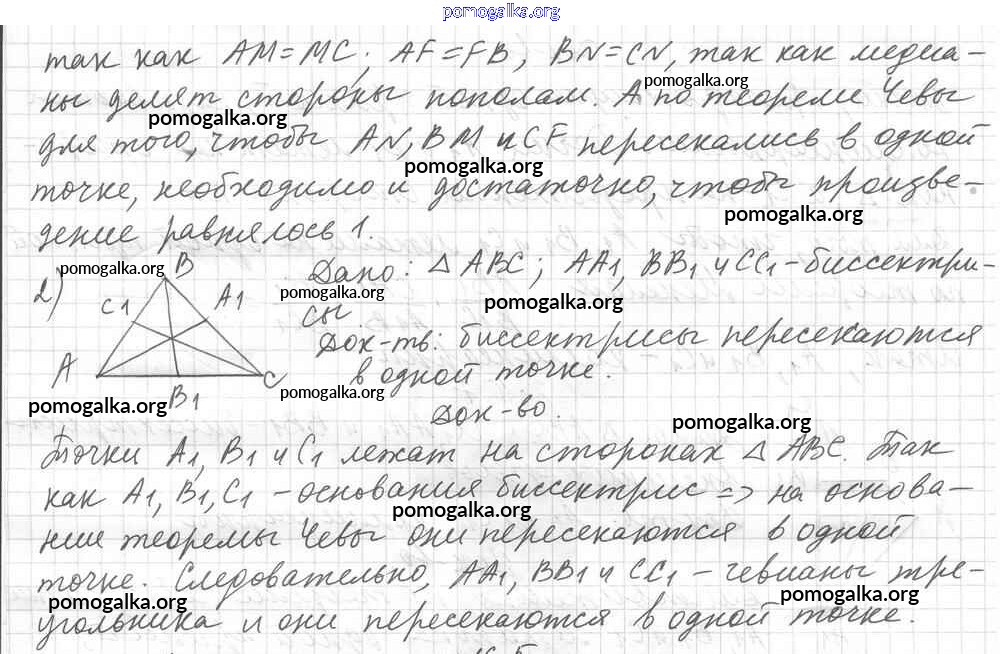 pomogalka.org
так как AM=MC; AF=FB, BN=CN, так как медиа-
pomogalka.org
ны делят стороны пополам. А по теореме Чевы
pomogalka.org
для того, чтобы AN, BM и CF пересекались в одной
pomogalka.org
точке, необходимо и достаточно, чтобы произве-
pomogalka.org
дение равнялось 1.
2)
B
C1
A1
A
C
B1
pomogalka.org
pomogalka.org
Дано: △ ABC; AA1, BB1 и CC1-биссектри-
pomogalka.org
сы
Док-ть: биссектрисы пересекаются
в одной точке.
pomogalka.org
Док-во.
pomogalka.org
Точки A1, B1 и C1 лежат на сторонах △ ABC. Так
как A1, B1, C1 - основания биссектрис => на основа-
pomogalka.org
нии теоремы Чевы они пересекаются в одной
точке. Следовательно, AA1, BB1 и CC1 - чевианы тре-
pomogalka.org
pomogalka.org
угольника и они пересекаются в одной точке.